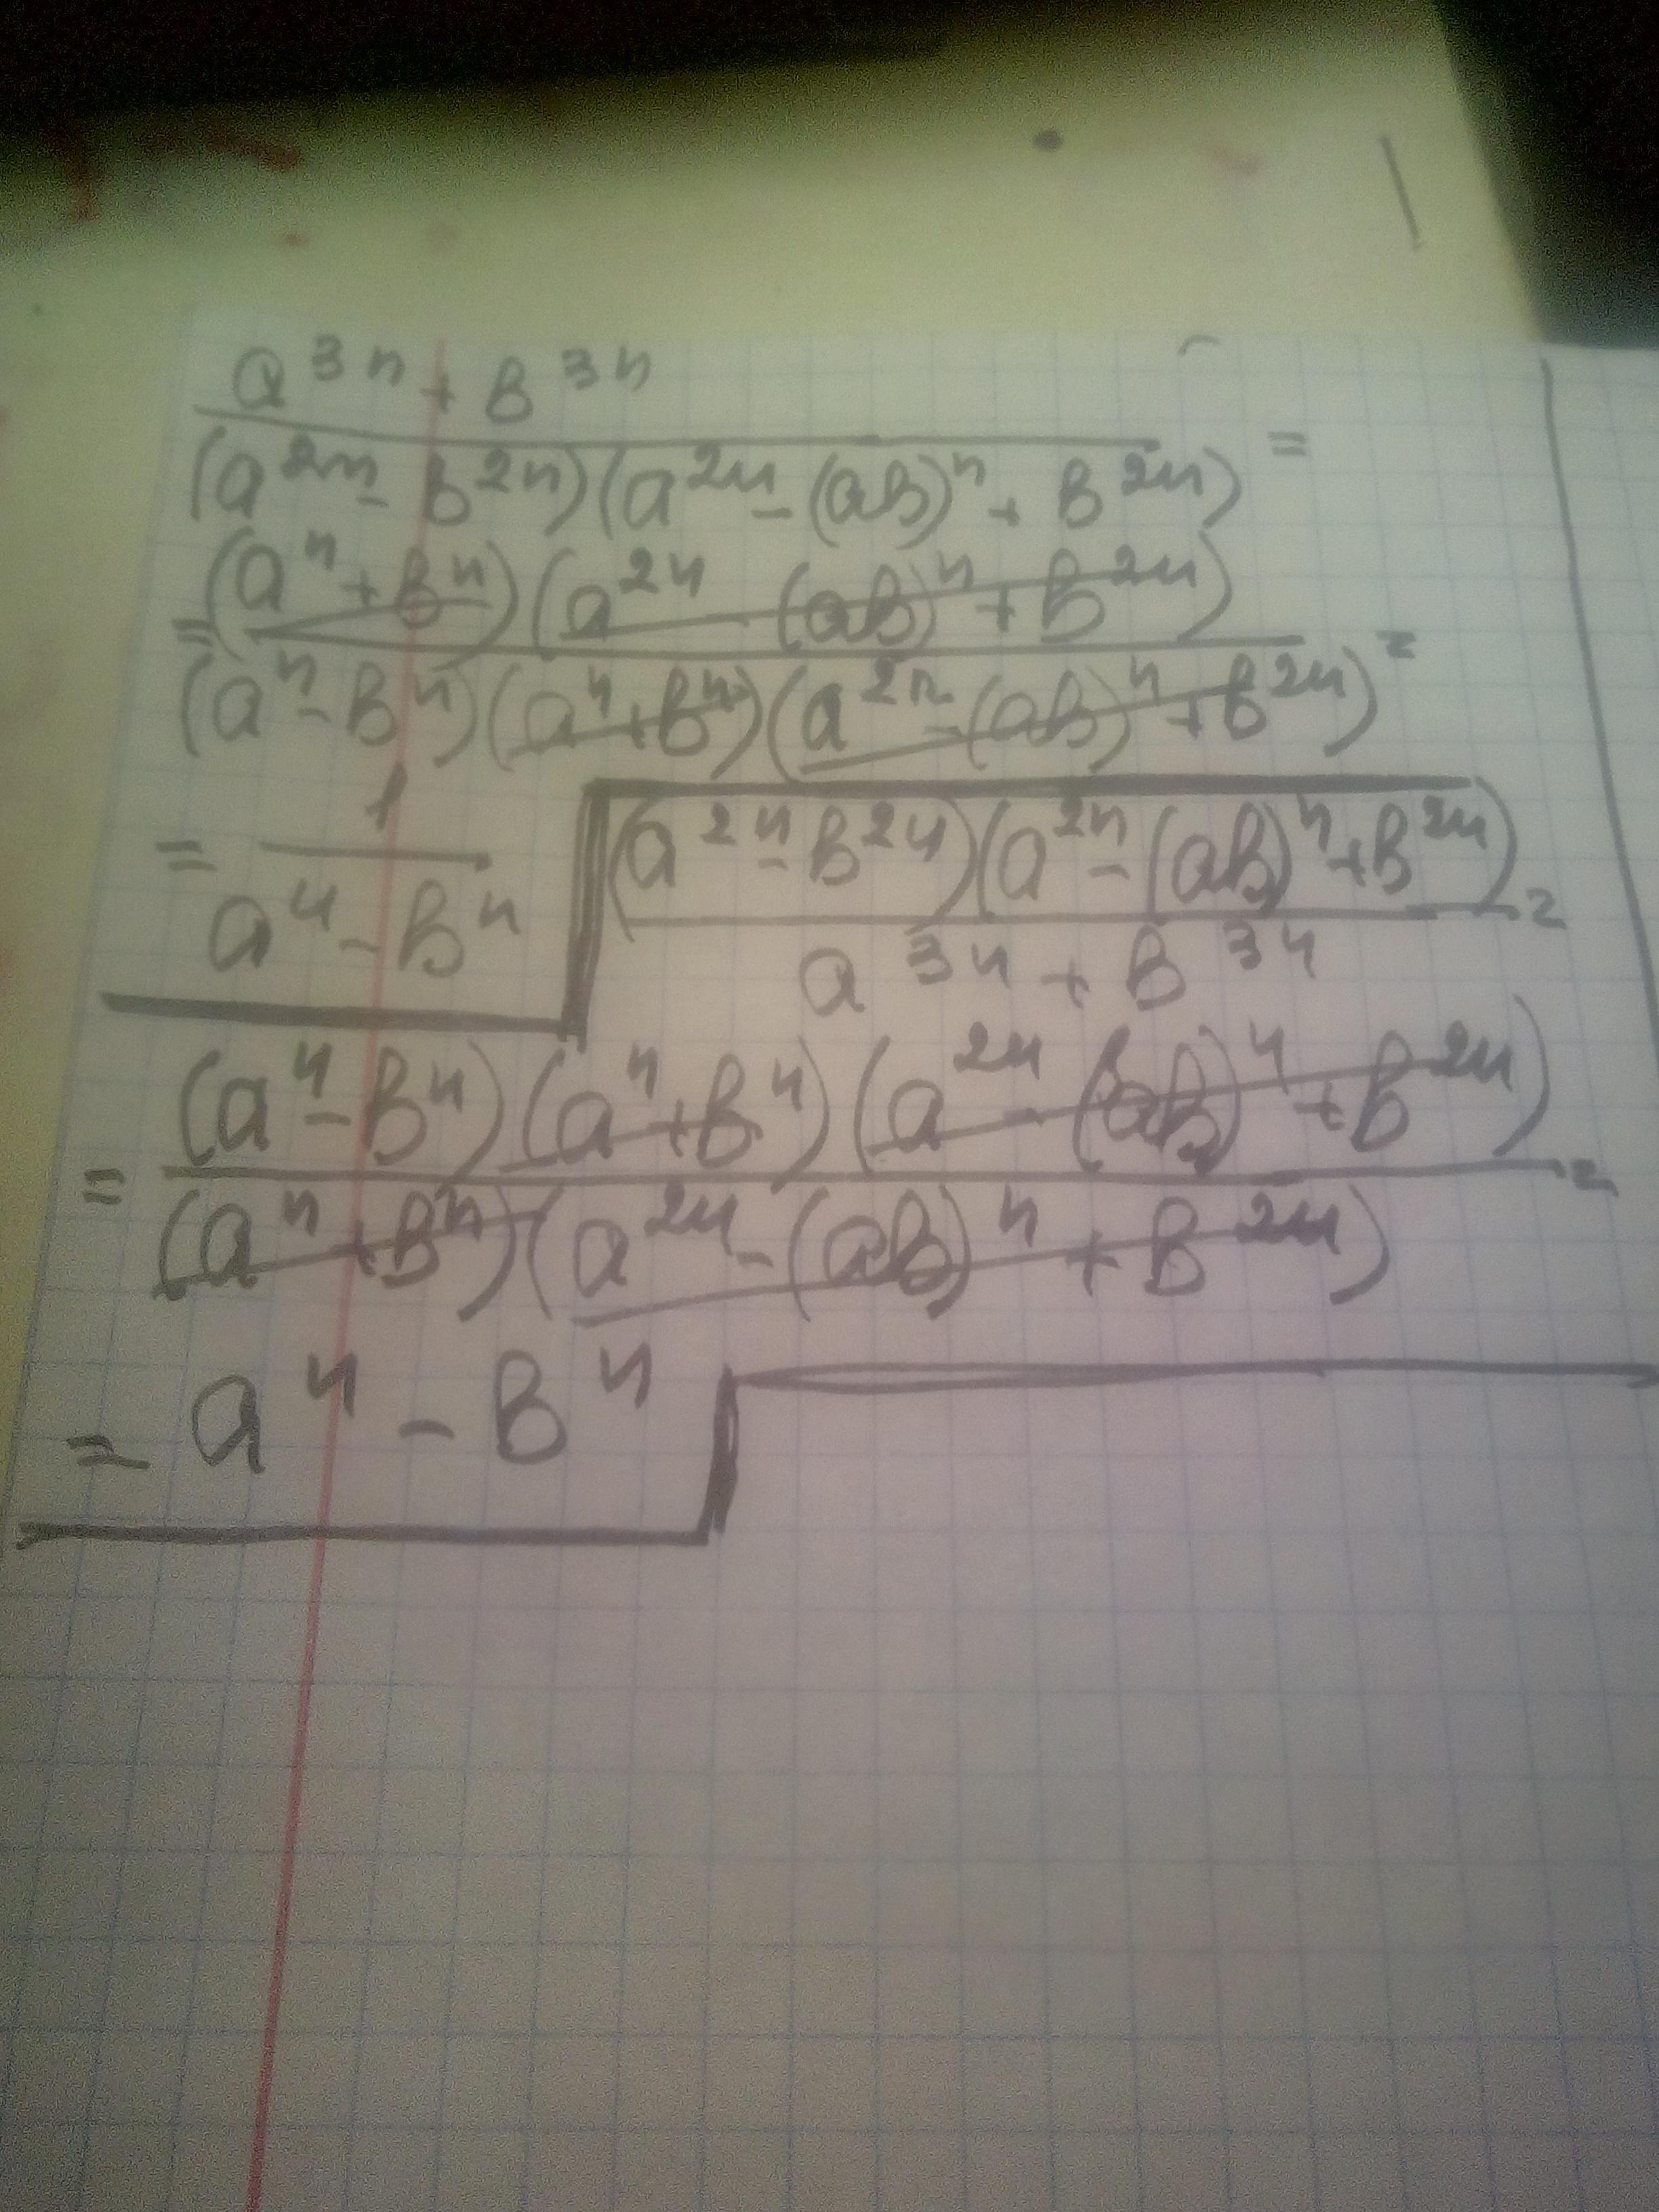 a^{3n} + b^{3n}
(a^{2n} - b^{2n})(a^{2n} - (ab)^n + b^{2n}) =
= (a^n + b^n)(a^{2n} - (ab)^n + b^{2n})
(a^n - b^n)(a^n + b^n)(a^{2n} - (ab)^n + b^{2n}) =
= 1
a^n - b^n
(a^{2n} - b^{2n})(a^{2n} - (ab)^n + b^{2n}) =
a^{3n} + b^{3n}
= (a^n - b^n)(a^n + b^n)(a^{2n} - (ab)^n + b^{2n}) =
(a^n + b^n)(a^{2n} - (ab)^n + b^{2n})
= a^n - b^n